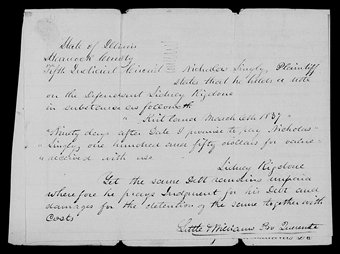 State of Illinois
Hancock County
Fifth Judicial Circuit Nicholas Singly, Plaintiff
states that he holds a note
on the defendant Sidney Rigdone
in substance as followeth
" Kirtland March 6th 1837 "
"Ninety days after date I promise to pay Nicholas
Singly, one hundred and fifty dollars for value
received with use
Sidney Rigdone
Yet the same Debt remains unpaid
wherefore he prays Judgment for his Debt and
damages for the detention of the same together with
Costs
Little & Williams Pro Querente